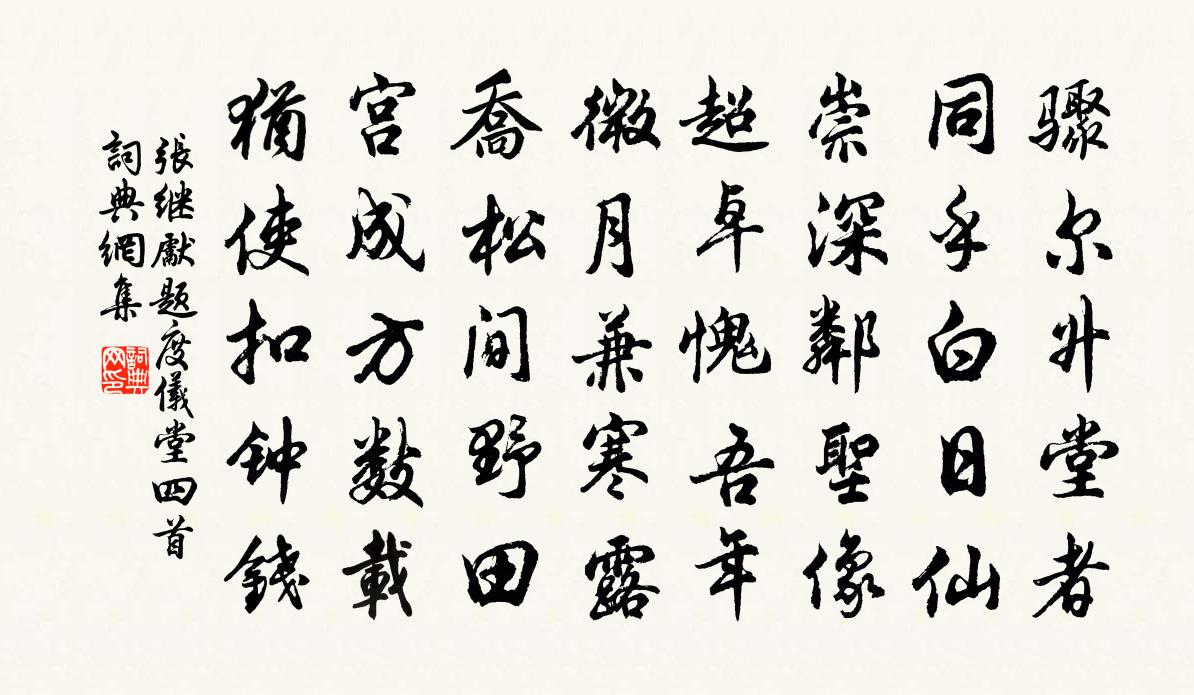 骤尔升堂者
同乎白日仙
崇深鄰聖像
超卓愧吾年
微月兼寒露
喬松间野田
宫成方数載
猶使扣钟錢
張继獻题度儀堂四首
詞典網集
詞典网印